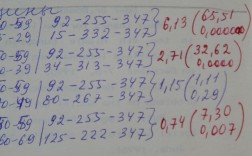 92-255-347 } 6,13 ( 65,51
5-29 | 15-332-347 0,00000
0-59 | 92-255-347 } 2,71 ( 32,62
0-39 | 34-313-347 0,0000
50-59 | 92-255-347 } 1,15 ( 1,11
80-267-347 0,29
50-59 | 92-255-347 } 0,74 ( 7,30
60-69 | 125-222-347 0,007